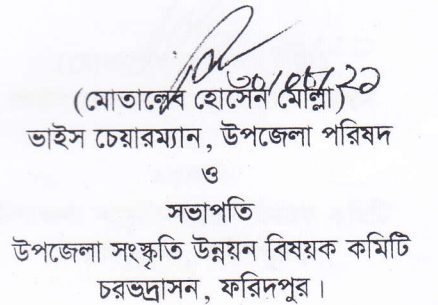 (মোতালেব হোসেন মোল্লা)
ভাইস চেয়ারম্যান, উপজেলা পরিষদ
ও
সভাপতি
উপজেলা সংস্কৃতি উন্নয়ন বিষয়ক কমিটি
চরভদ্রাসন, ফরিদপুর।